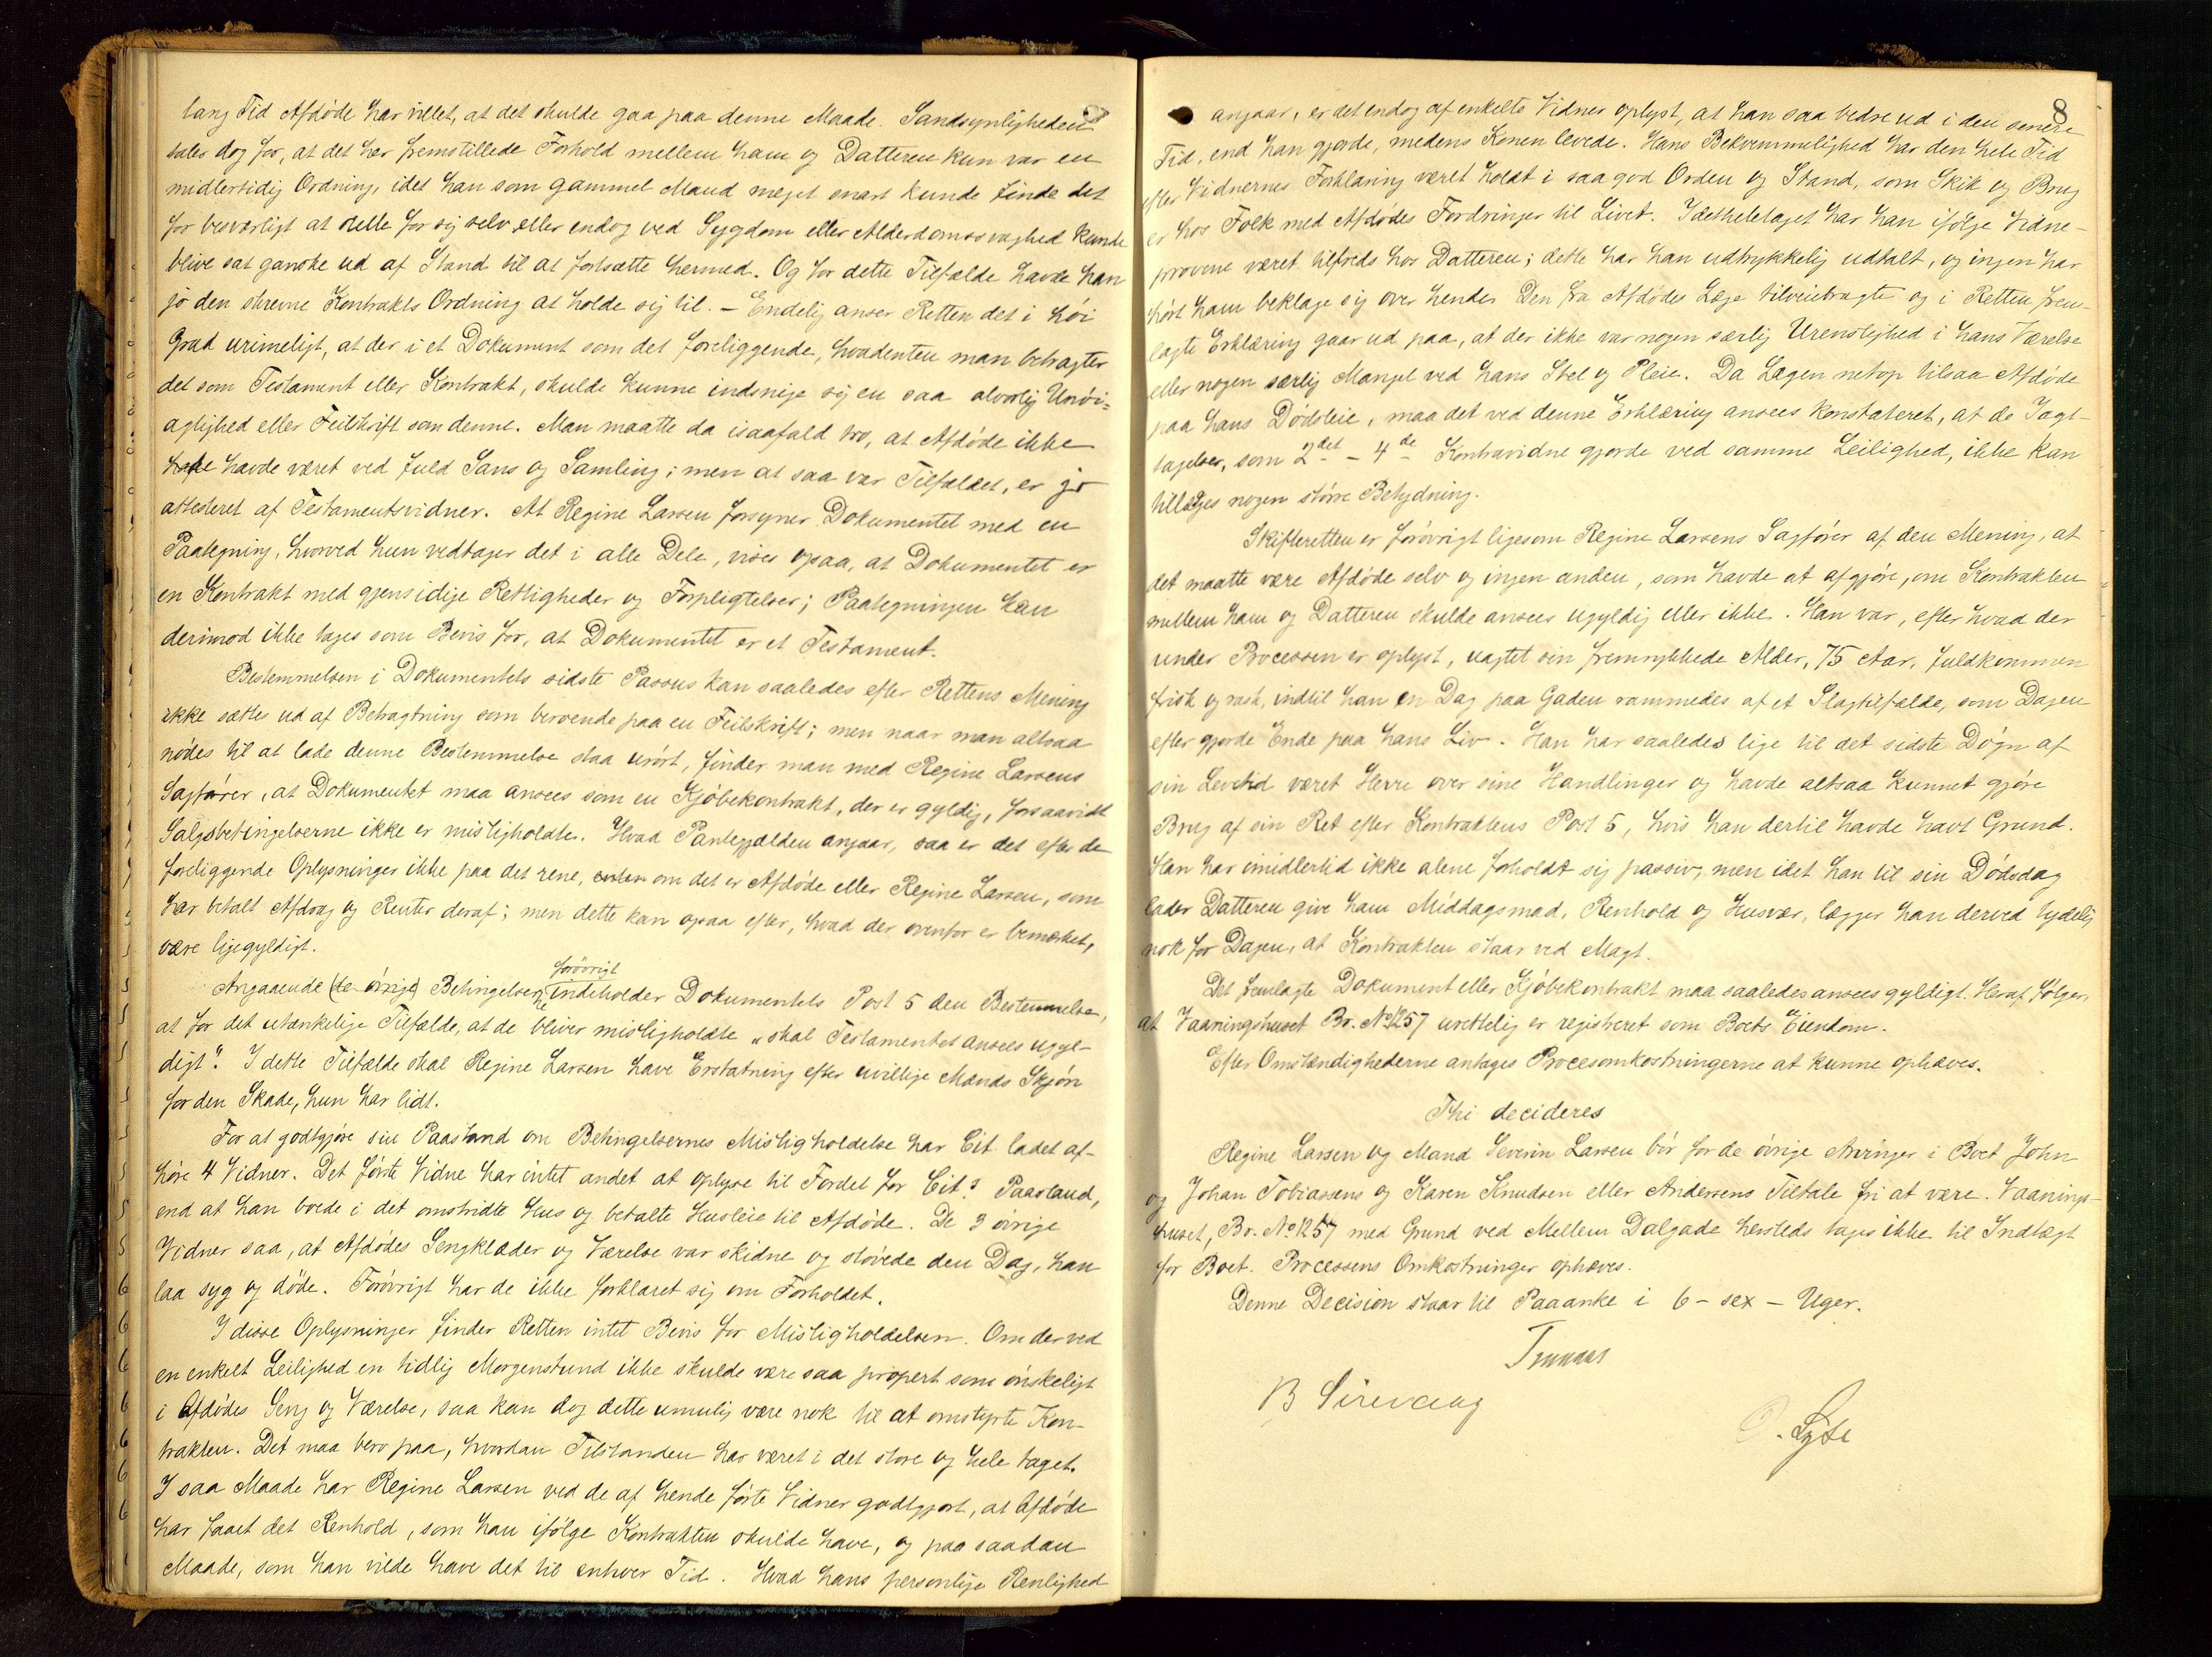 lang Tid Afdøde har villet, at det skulde gaa paa denne Maade. Sandsynligheden
taler dog for, at det her fremstillede Forhold mellem ham og Datteren kun var en
midlertidig Ordning, idet han som gammel Mand meget snart kunde finde det
for besværligt at stelle for sig selv eller endog ved Sygdom eller Alderdomssvaghed kunde
blive sat ganske ud af Stand til at fortsætte hermed. Og for dette Tilfælde havde han
jo den skrevne Kontrakts Ordning at holde sig til. – Endelig anser Retten det i høi
Grad urimeligt, at der i et Dokument som det foreliggende, hvadenten man betragter
det som Testament eller Kontrakt, skulde kunne indsnige sig en saa alvorlig Unøi=
agtighed eller Feilskrift som denne. Man maatte da isaafald tro, at Afdøde ikke
havde været ved fuld Sans og Samling; men at saa var Tilfældet, er jo
attesteret af Testamentsvidner. At Regine Larsen forsyner Dokumentet med en
Paategning, hvorved hun vedtager det i alle Dele, viser ogsaa, at Dokumentet er
en Kontrakt med gjensidige Rettigheder og Forpligtelser; Paategningen kan
derimod ikke tages som Bevis for, at Dokumentet er et Testament.
Bestemmelsen i Dokumentets sidste Passus kan saaledes efter Rettens Mening
ikke sættes ud af Betragtning som beroende paa en Feilskrift; men naar man altsaa
nødes til at lade denne Bestemmelse staa urørt, finder man med Regine Larsens
Sagfører, at Dokumentet maa ansees som en Kjøbekontrakt, der er gyldig, forsaavidt
Salgsbetingelserne ikke er misligholdte. Hvad Pantegjælden angaar, saa er det efter de
foreliggende Oplysninger ikke paa det rene, enten om det er Afdøde eller Regine Larsen, som
har betalt Afdrag og Renter deraf; men dette kan ogsaa efter, hvad der ovenfor er bemærket,
være ligegyldigt.
forøvrigt
Angaaende (de øvrige) Betingelser, indeholder Dokumentets Post 5 den Bestemmelse,
at for det utænkelige Tilfælde, at de bliver misligholdte „skal Testamentet ansees ugyl-
digt“. I dette Tilfælde skal Regine Larsen have Erstatning efter uvillige Mænds Skjøn
for den Skade, hun har lidt.
For at godtgjøre sin Paastand om Betingelsernes Misligholdelse har Cit. ladet af-
høre 4 Vidner. Det første Vidne har intet andet at oplyse til Fordel for Cit.s Paastand,
end at han boede i det omstridte Hus og betalte Husleie til Afdøde. De 3 øvrige
Vidner saa, at Afdødes Sengklæder og Værelse var skidne og støvede den Dag, han
laa syg og døde. Forøvrigt har de ikke forklaret sig om Forholdet.
I disse Oplysninger finder Retten intet Bevis for Misligholdelsen. Om der ved
en enkelt Leilighed en tidlig Morgenstund ikke skulde være saa propert som ønskeligt
i Afdødes Seng og Værelse, saa kan dog dette umulig være nok til at omstyrte Kon-
trakten. Det maa bero paa, hvordan Tilstanden har været i det store og hele taget.
I saa Maade har Regine Larsen ved de af hende førte Vidner godtgjort, at Afdøde
har faaet det Renhold, som han ifølge Kontrakten skulde have, og paa saadan
Maade, som han vilde have det til enhver Tid. Hvad hans personlige Renlighed
8
angaar, er det endog af enkelte Vidner oplyst, at han saa bedre ud i den senere
Tid, end han gjorde, medens Konen levede. Hans Bekvemmelighed har den hele Tid
efter Vidnernes Forklaring været holdt i saa god Orden og Stand, som Skik og Brug
er hos Folk med Afdødes Fordringer til Livet. Idetheletaget har han ifølge Vidne-
provene været tilfreds hos Datteren; dette har han udtrykkelig udtalt, og ingen har
hørt ham beklage sig over hende. Den fra Afdødes Læge tilveiebragte og i Retten frem-
lagte Erklæring gaar ud paa, at der ikke var nogen særlig Urenslighed i hans Værelse
eller nogen særlig Mangel ved hans Stel og Pleie. Da Lægen netop tilsaa Afdøde
paa hans Dødsleie, maa det ved denne Erklæring ansees konstateret, at de Iagt-
tagelser, som 2det – 4de Kontravidne gjorde ved samme Leilighed, ikke kan
tillægges nogen større Betydning.
Skifteretten er forøvrigt ligesom Regine Larsens Sagfører af den Mening, at
det maatte være Afdøde selv og ingen anden, som havde at afgjøre, om Kontrakten
mellem ham og Datteren skulde ansees ugyldig eller ikke. Han var, efter hvad der
under Processen er oplyst, uagtet sin fremrykkede Alder, 75 Aar, fuldkommen
frisk og rask, indtil han en Dag paa Gaden rammedes af et Slagtilfælde, som Dagen
efter gjorde Ende paa hans Liv. Han har saaledes lige til det sidste Døgn af
sin Levetid været Herre over sine Handlinger og havde altsaa kunnet gjøre
Brug af sin Ret efter Kontraktens Post 5, hvis han dertil havde havt Grund.
Han har imidlertid ikke alene forholdt sig passiv, men idet han til sin Dødsdag
lader Datteren give ham Middagsmad, Renhold og Husvær, lægger han derved tydelig
nok for Dagen, at Kontrakten staar ved Magt.
Det fremlagte Dokument eller Kjøbekontrakt maa saaledes ansees gyldigt. Heraf følger,
at Vaaningshuset Br. No 1257 urettelig er registreret som Boets Eiendom.
Efter Omstændighederne antages Procesomkostningerne at kunne ophæves.
Thi decideres
Regine Larsen og Mand Severin Larsen bør for de øvrige Arvinger i Boet John
og Johan Tobiassens og Karen Knudsen eller Andersens Tiltale fri at være. Vaanings-
huset, Br. No 1257 med Grund ved Mellem Dalgade hersteds tages ikke til Indtægt
for Boet. Processens Omkostninger ophæves.
Denne Decision staar til Paaanke i 6 – sex – Uger.
B Sirevaag
Lyse